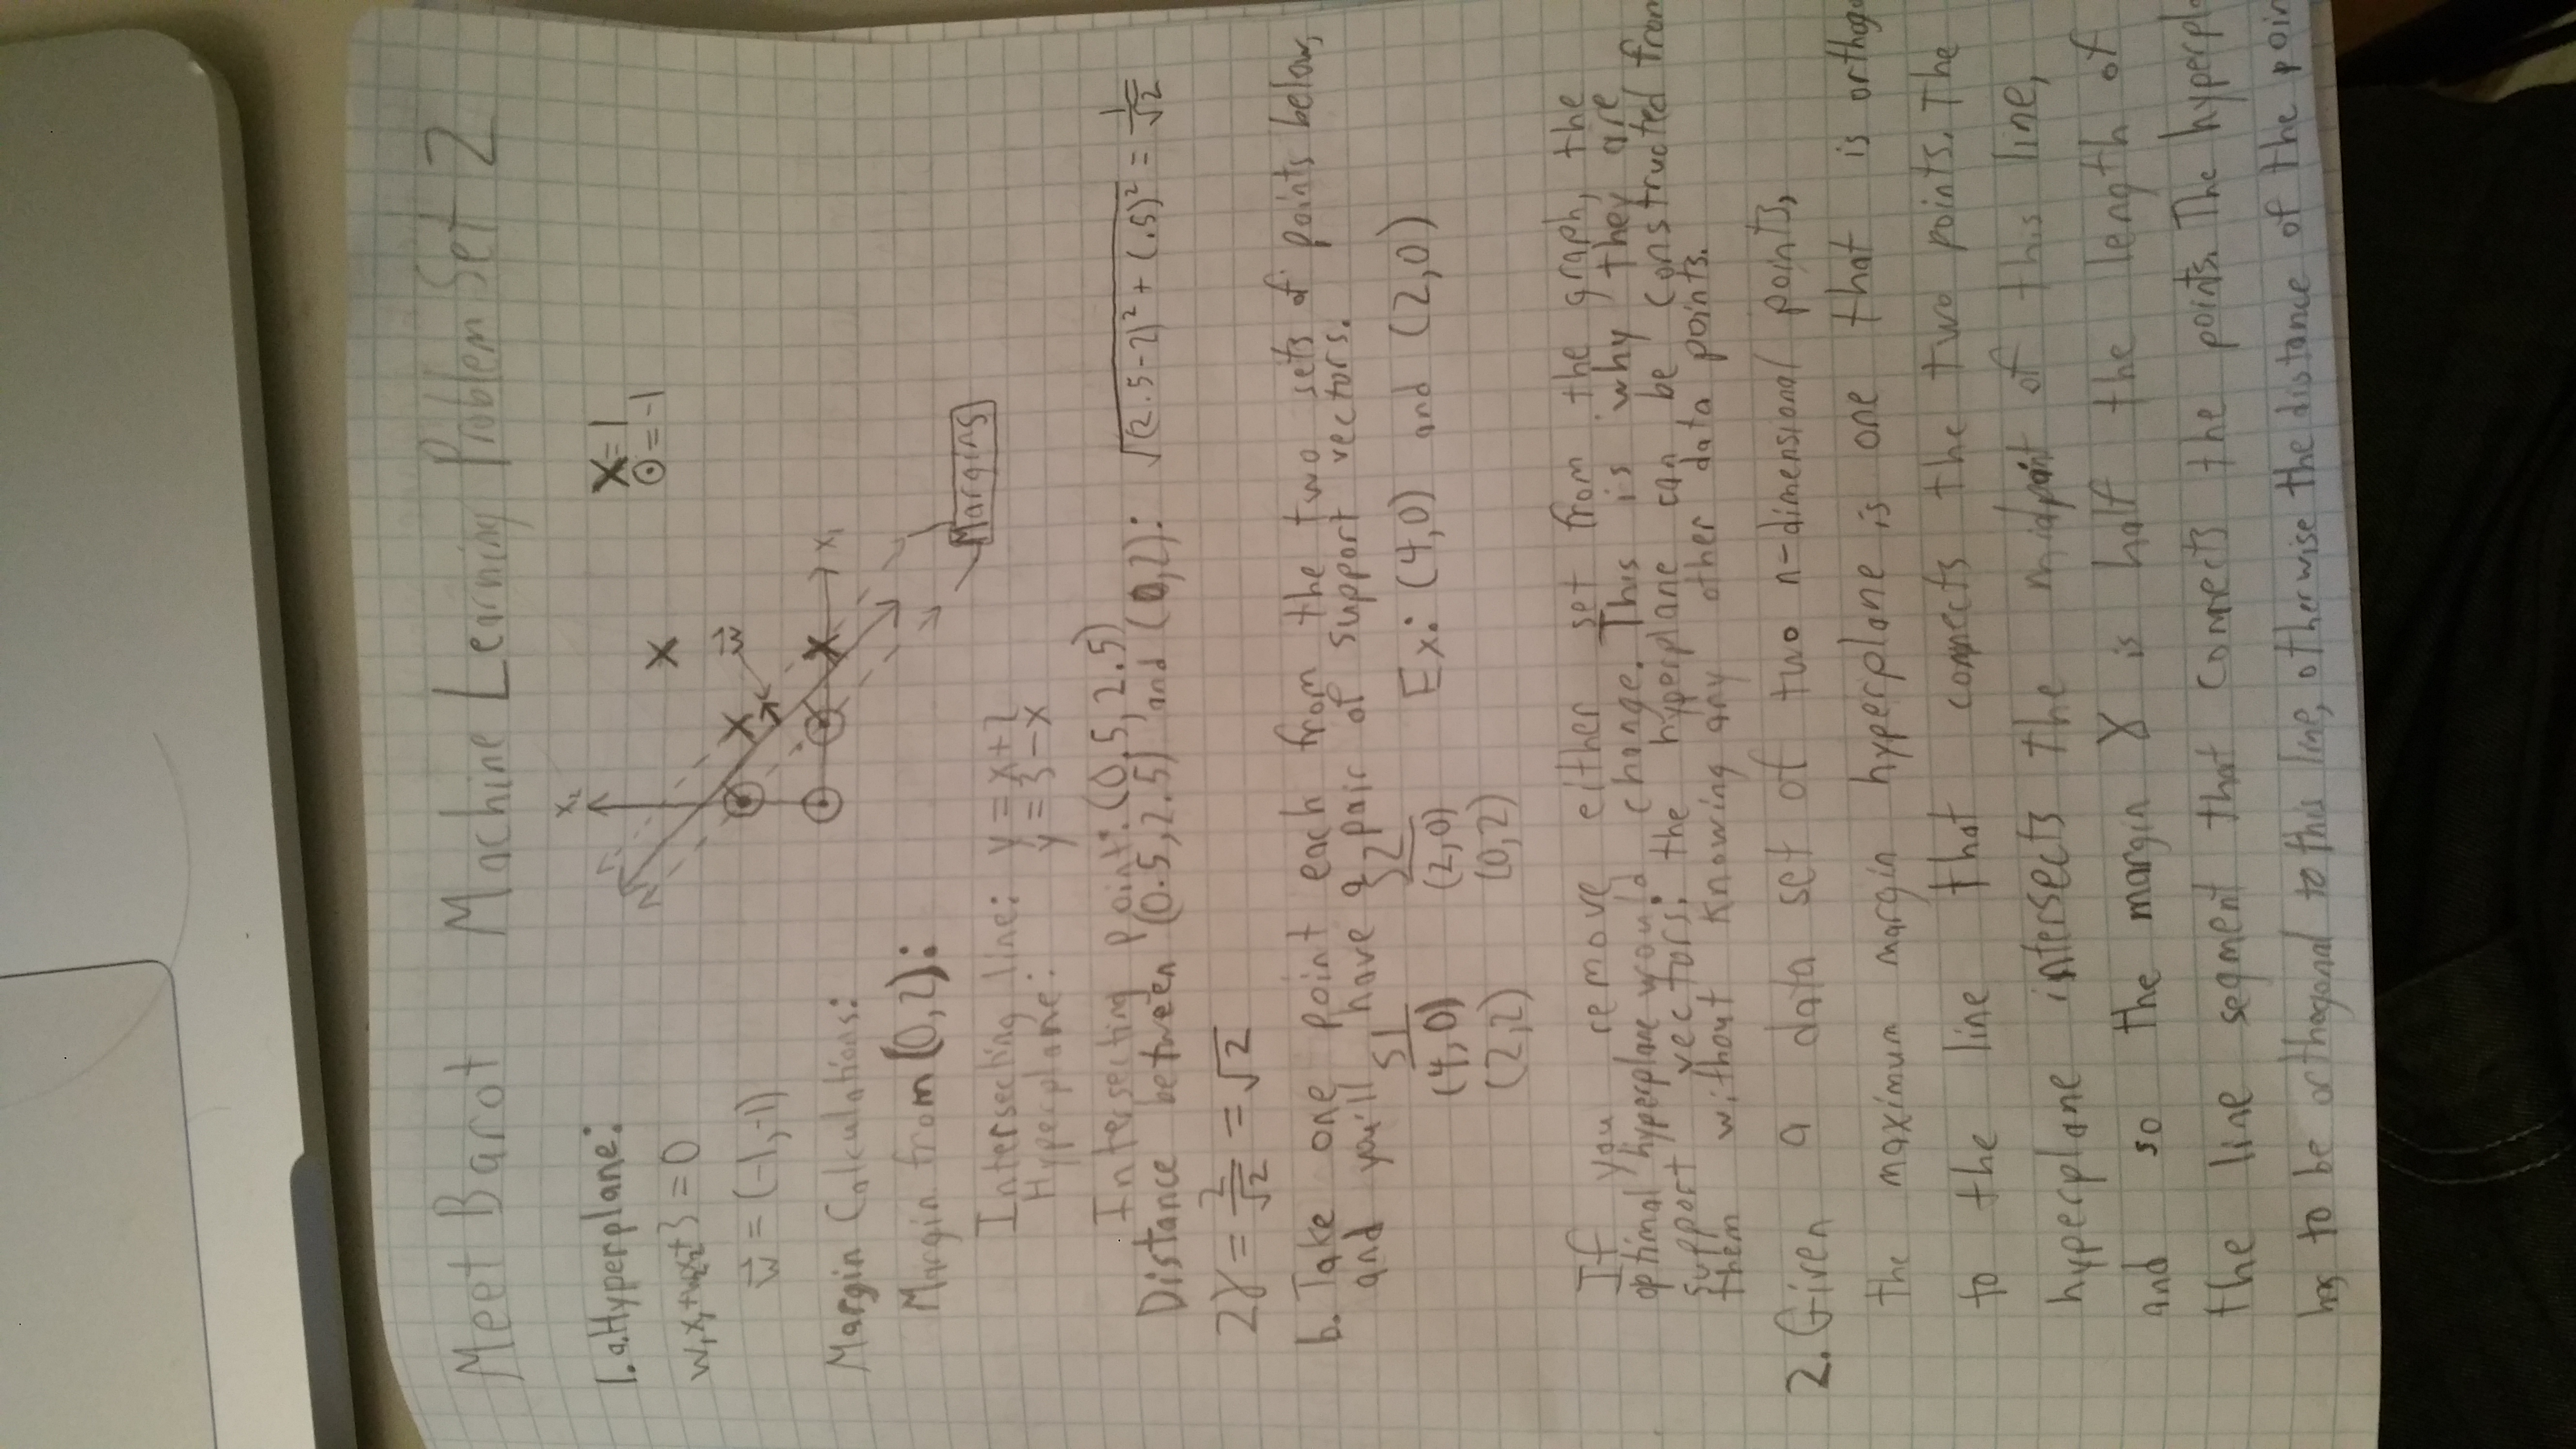 Meet Barot Machine Learning Problem Set 2
1. a. Hyperplane:
w₁x₁+w₂x₂+3 = 0
w⃗ = (-1,-1)
x₂
X=1
⊙=-1
w⃗
x₁
Margins
Margin Calculations:
Margin from (0,2):
Intersecting line: y = x+2
Hyperplane: y = 3-x
Intersecting point: (0.5, 2.5)
Distance between (0.5,2.5) and (0,2): √((2.5-2)² + (.5)²) = 1/√2
2γ = 2/√2 = √2
b. Take one point each from the two sets of points below,
and you'll have a pair of support vectors.
S1 S2
(4,0) (2,0) Ex: (4,0) and (2,0)
(2,2) (0,2)
If you remove either set from the graph, the
optimal hyperplane would change. This is why they are
support vectors: the hyperplane can be constructed from
them without knowing any other data points.
2. Given a data set of two n-dimensional points,
the maximum margin hyperplane is one that is orthogo
to the line that connects the two points. The
hyperplane intersects the midpoint of this line,
and so the margin γ is half the length of
the line segment that connects the points. The hyperpla
has to be orthogonal to this line, otherwise the distance of the poin